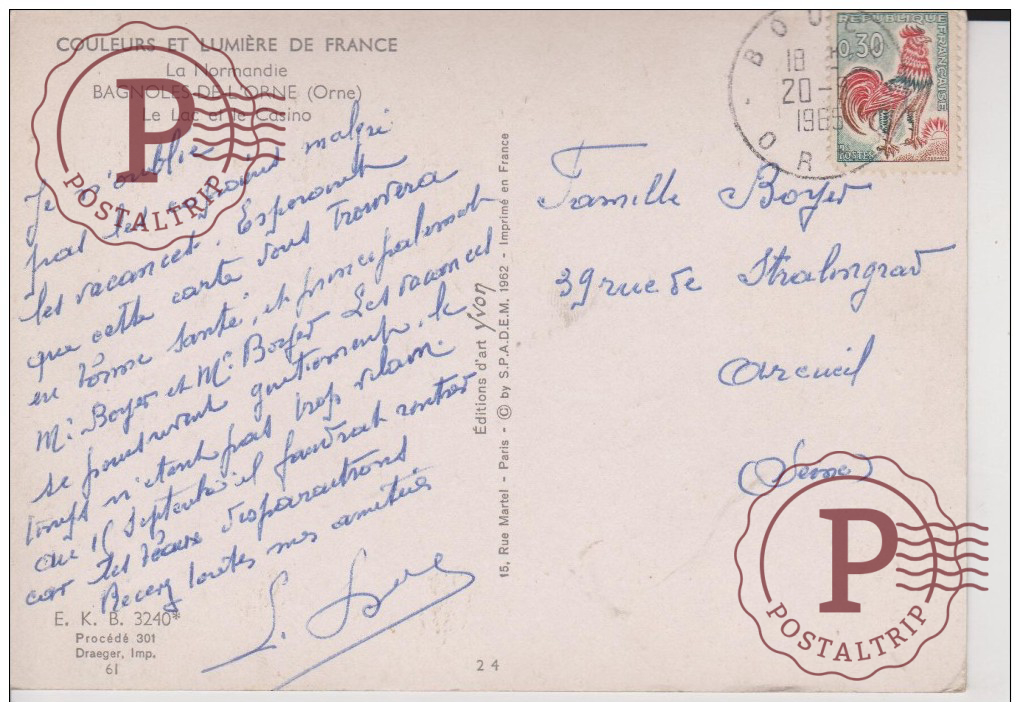 COULEURS ET LUMIÈRE DE FRANCE
La Normandie
BAGNOLES-DE-L'ORNE (Orne)
Le Lac et le Casino
Je n'oublie
pas les malgré
les vacances. Esperant
que cette carte vous trouvera
en bonne santé, et principalement
Mr Boyer et Me Boyer Les vacances
se poursuivent gentiment, le
temps n'étant pas trop vilain.
au 15 Septembre il faudrat rentrer
car les disparaitrons
Recevez toutes mes amitiés
E. K. B. 3240*
Procédé 301
Draeger, Imp.
61
24
15, Rue Martel - Paris - © by S.P.A.D.E.M. 1962 - Imprimé en France
Éditions d'art Yvon
BOU
18
20-
1965
OR
RÉPUBLIQUE FRANÇAISE
0,30
POSTES
Famille Boyer
39 rue de Stralingrad
Arcueil
(Seine)
P
POSTALTRIP
P
POSTALTRIP